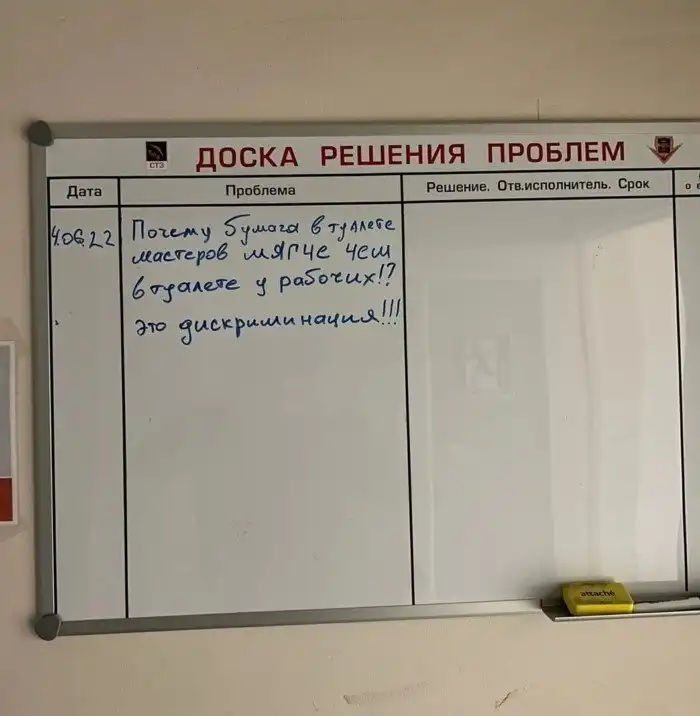 СТЗ
ДОСКА РЕШЕНИЯ ПРОБЛЕМ
Дата
Проблема
Решение. Отв.исполнитель. Срок
4.06.22
Почему бумага в туалете
мастеров мягче чем
в туалете у рабочих!?
это дискриминация!!!
attaché